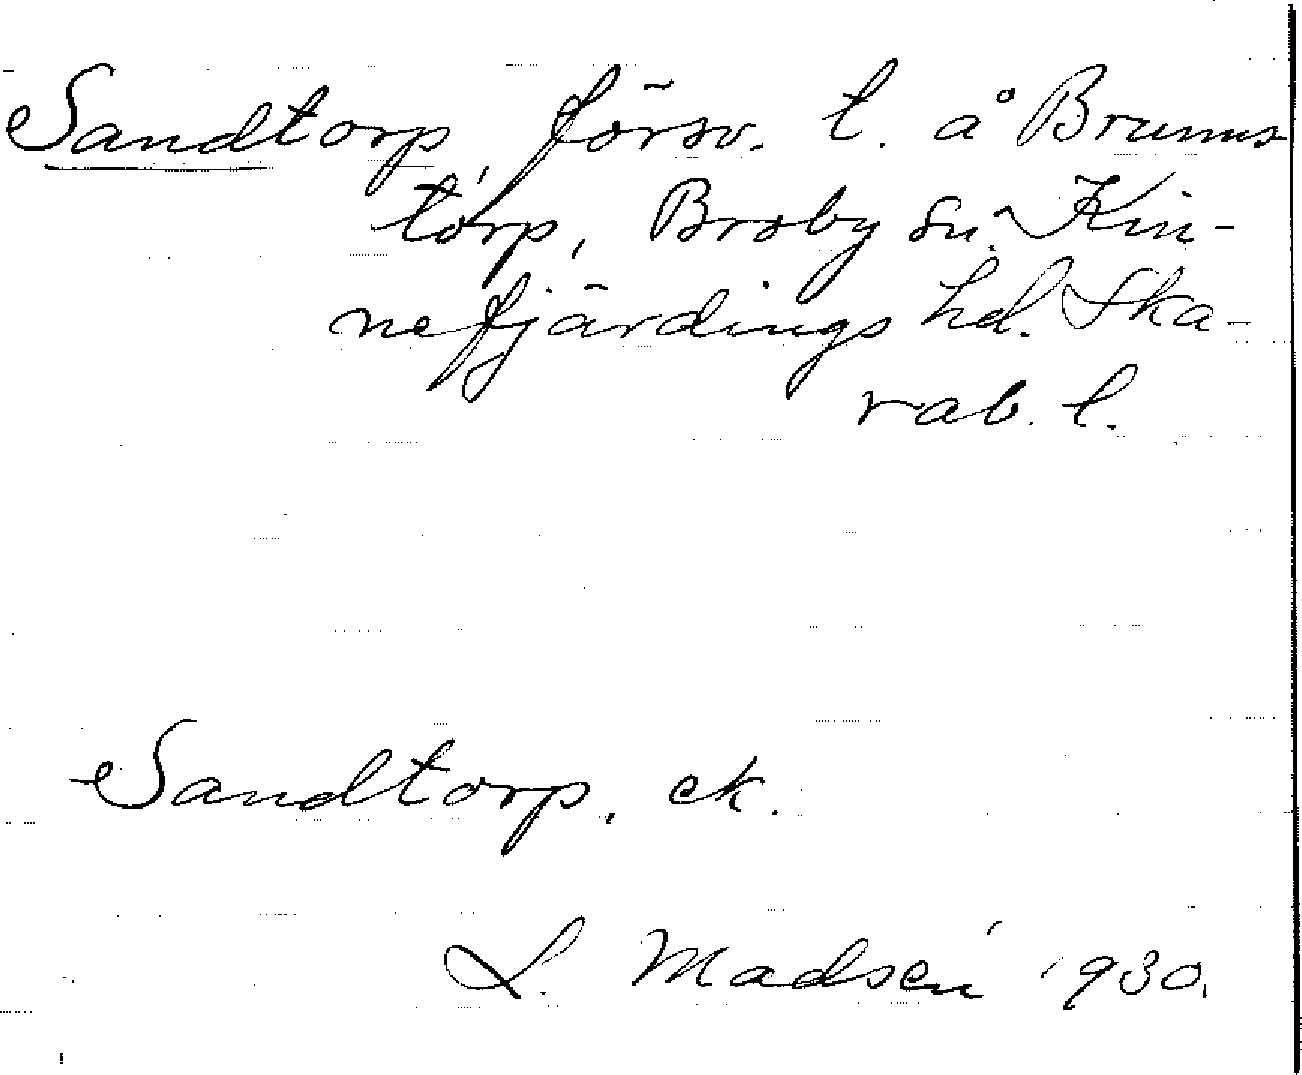 Sandtorp, försv. t. å Brums
torp, Broby sn. Kin-
nefjärdings hd. Ska-
rab. l.
Sandtorp, ek.
L. Madsén 1930.